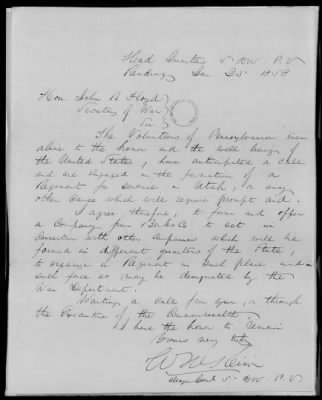 Head Quarters 5" Div. P. V
Reading Jan 23" 1858
Hon. John B Floyd
Secretary of War
Sir
The Volunteers of Pennsylvania ever
alive to the honor and the well being of
the United States, have anticipated a call
and are engaged in the formation of a
Regiment for service in Utah, or any
other cause which will require prompt aid.
I agree, therefore, to form and offer
a Company from Berks Co to act in
Connection with other Companies which will be
formed in different quarters of the State,
to organize a Regiment in such place and in
such force as may be designated by the
War Department.
Waiting a call from you, or through
the Executive of the Commonwealth
I have the honor to remain
Yours very truly
Wm H Keim
Major Genl 5" Div. P. V.